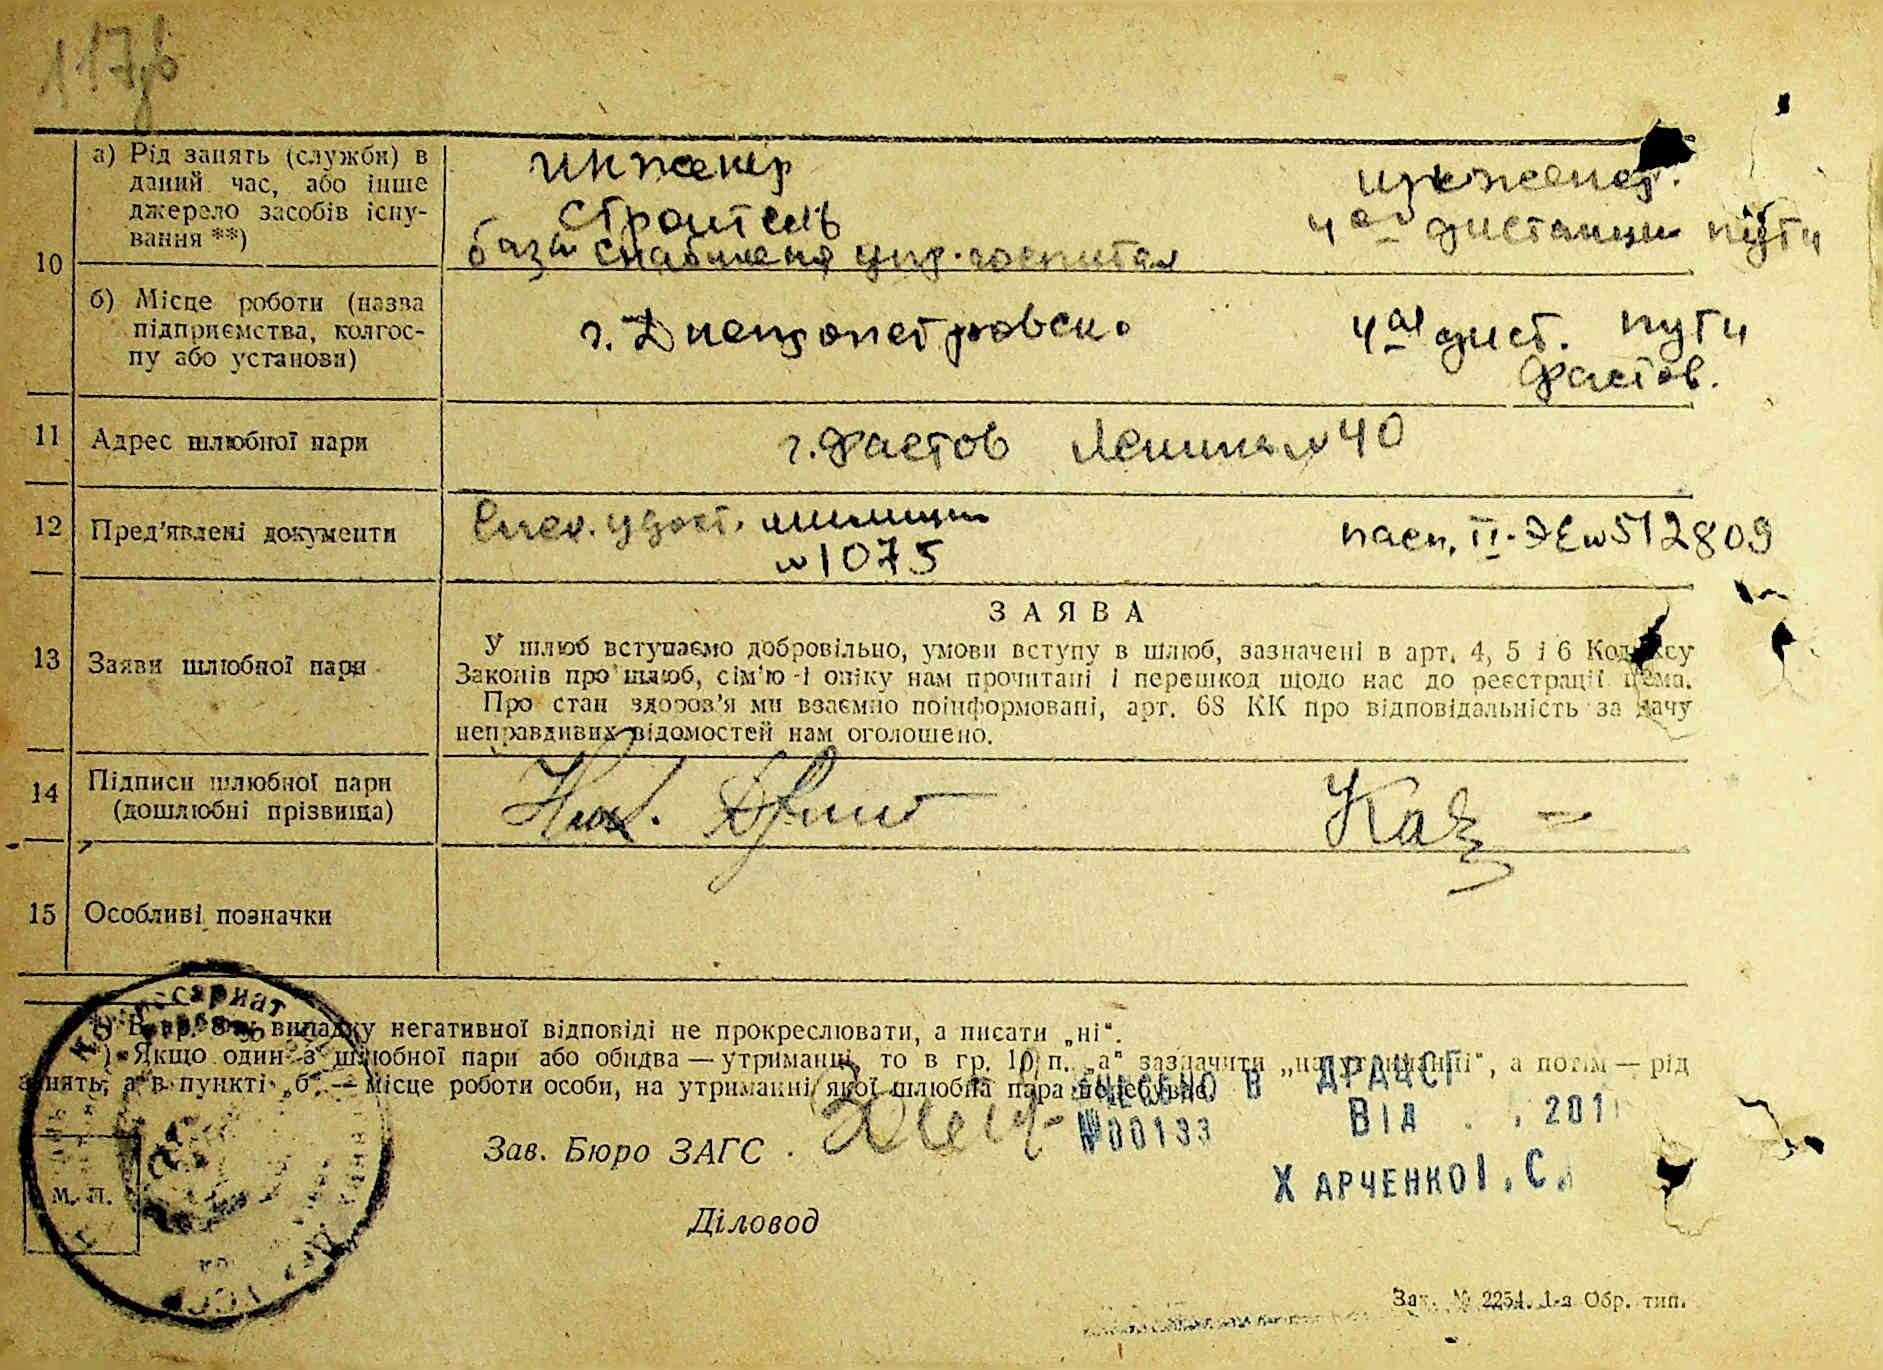 117
а) Рід занять (служби) в
даний час, або інше
джерело засобів існу-
вання **)
инженер
строитель
база снабжения упр. госпитал
инженер.
4ая дистанции пути
10
б) Місце роботи (назва
підприємства, колгос-
пу або установи)
г. Днепропетровск.
4ая дист. пути
Фастов.
11
Адрес шлюбної пари
г. Фастов Ленина № 40
12
Пред'явлені документи
удост. милиции
№ 1075
пасп. II-ЭЕ № 512809
13
Заяви шлюбної пари
ЗАЯВА
У шлюб вступаємо добровільно, умови вступу в шлюб, зазначені в арт. 4, 5 і 6 Кодексу
Законів про шлюб, сім'ю і опіку нам прочитані і перешкод щодо нас до реєстрації нема.
Про стан здоров'я ми взаємно поінформовані, арт. 68 КК про відповідальність за дачу
неправдивих відомостей нам оголошено.
14
Підписи шлюбної пари
(дошлюбні прізвища)
15
Особливі позначки
*) В гр. 8 у випадку негативної відповіді не прокреслювати, а писати „ні“.
**) Якщо один з шлюбної пари або обидва — утриманці, то в гр. 10 п. „а“ зазначити „на утриманні“, а потім — рід
занять, а в пункті „б“ — місце роботи особи, на утриманні якої шлюбна пара перебуває.
ВНЕСЕНО В ДРАЦСГ
№00133 Від . . 201
ХАРЧЕНКО І. С.
Зав. Бюро ЗАГС
М. П.
Діловод
Зак. № 2254. 1-а Обр. тип.